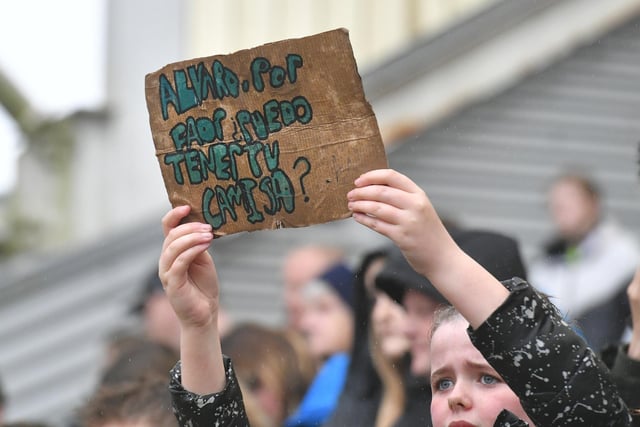 ALVARO, POR
FAOR ¿PUEDO
TENER TU
CAMISA?